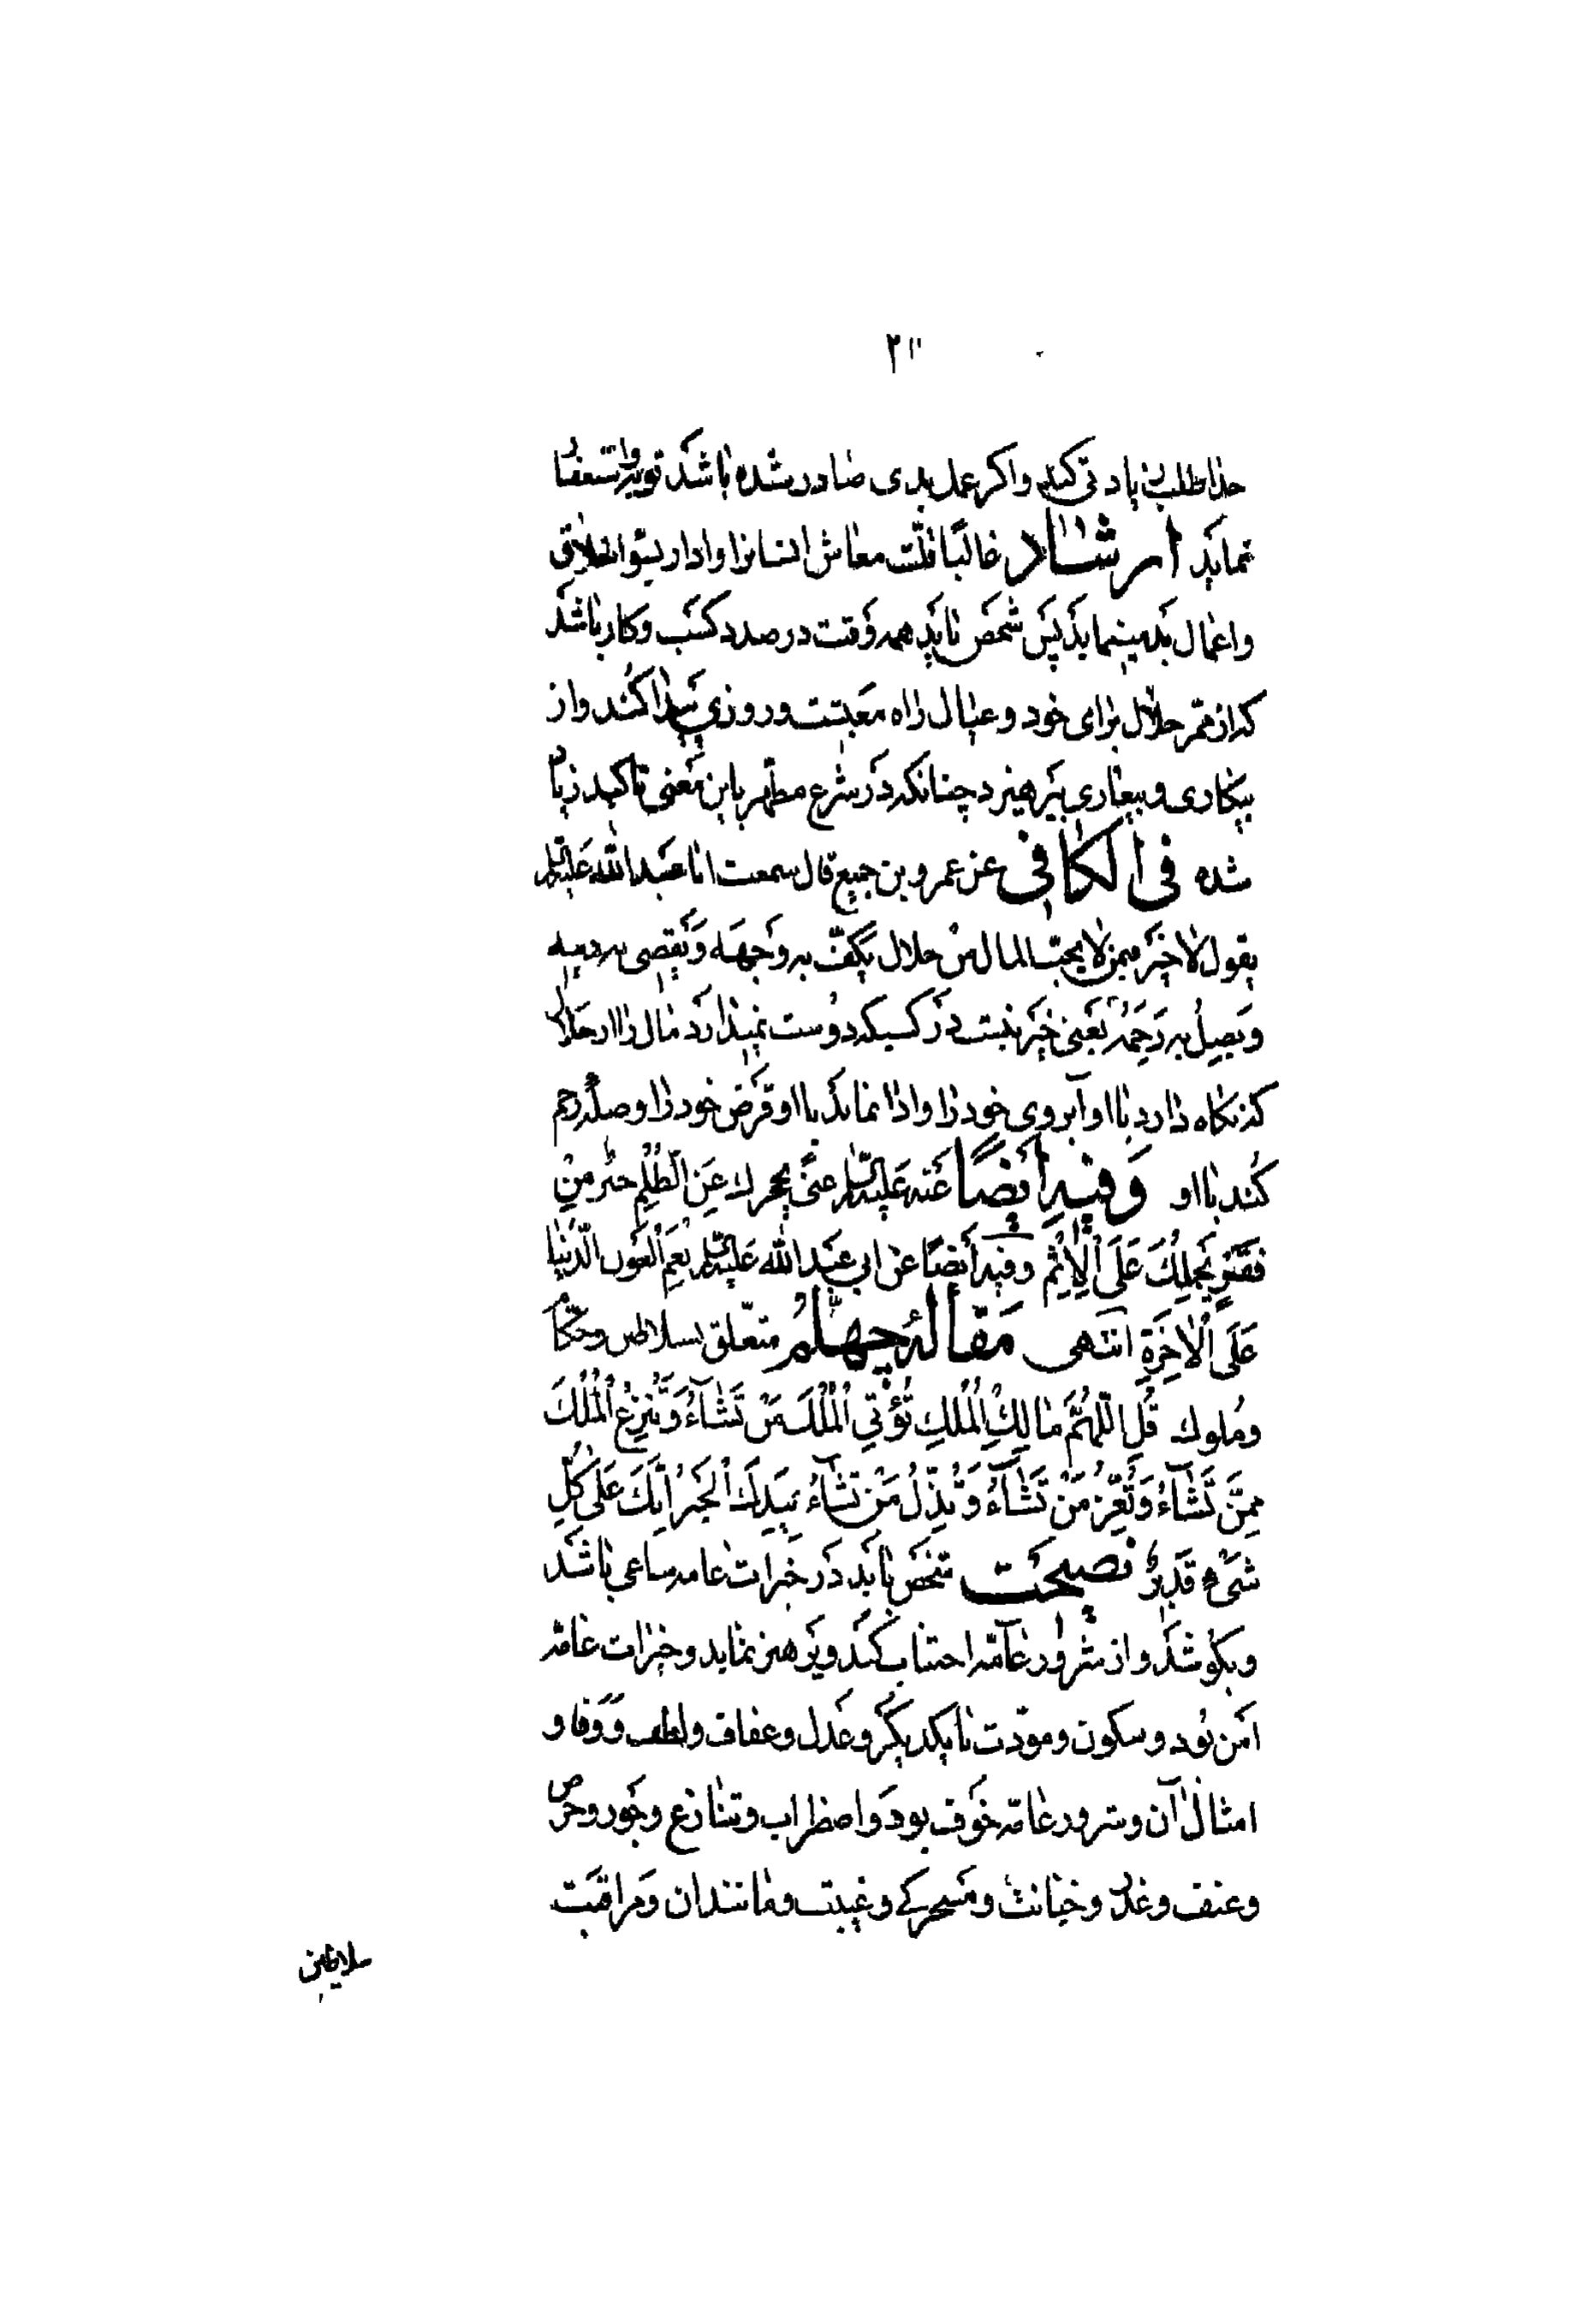 خدا طلب زیادتی کند واکر عمل بدی صادر شده باشد توبه واستغفار
نماید ارشاد غالبًا قلّت معاش انسانرا وادار بسوء اخلاق
واعمال بد مینماید پس شخص باید همه وقت در صدد کسب وکار باشد
که از ممرّ حلال برای خود وعیال راه معیشت وروزی پیدا کند واز
بیکاری وبیعاری بپرهیزد چنانکه در شرع مطهر باین معنی تاکید زیاد
شده فی الکافی عن عمرو بن جمیع قال سمعت ابا عبد الله علیه السلام
یقول لا خیر فیمن لا یحبّ المال من حلال یکفّ به وجهه ویقضی به دینه
ویصل به رحمه یعنی خیر نیست در کسیکه دوست نمیدارد مال را از حلال
که نکاه دارد با او آبروی خود را وادا نماید با او قرض خود را وصلهٔ رحم
کند با او وَفیهِ اَیضًا عَنه علیه السلام غنًی یحجزك عَنِ الظُّلمِ خیر مِن
فَقرٍ یَحمِلُكَ عَلَی الْاِثْمِ وفیه اَیضًا عن ابی عبد الله علیه السلام نِعمَ العَون الدُّنیا
عَلَی الْاٰخِرَةِ انتهی مَقالهٔ چهارم متعلّق بسلاطین وحکّام
وملوك قُلِ اللّٰهُمَّ مٰالِكَ الْمُلْكِ تُؤْتِی الْمُلْكَ مَنْ تَشٰآءُ وَتَنْزِعُ الْمُلْكَ
مِمَّنْ تَشٰآءُ وَتُعِزُّ مَنْ تَشٰآءُ وَتُذِلُّ مَنْ تَشٰآءُ بِیَدِكَ الْخَیْرُ اِنَّكَ عَلیٰ کُلِّ
شَیْءٍ قَدیرٌ نصیحَت شخص باید در خیرات عامه ساعی باشد
وبکوشد واز شرور عامّه اجتناب کند وپرهیز نماید وخیرات عامّه
امن بود وسکون ومودّت با یکدیکر وعدل وعفاف ولطف ووفا و
امثال آن وشرور عامّه خوف بود واضطراب وتنازع وجور وحرص
وعنف وغدر وخیانت ومسخرکی وغیبت ومانند ان ومراقبت
سلاطین